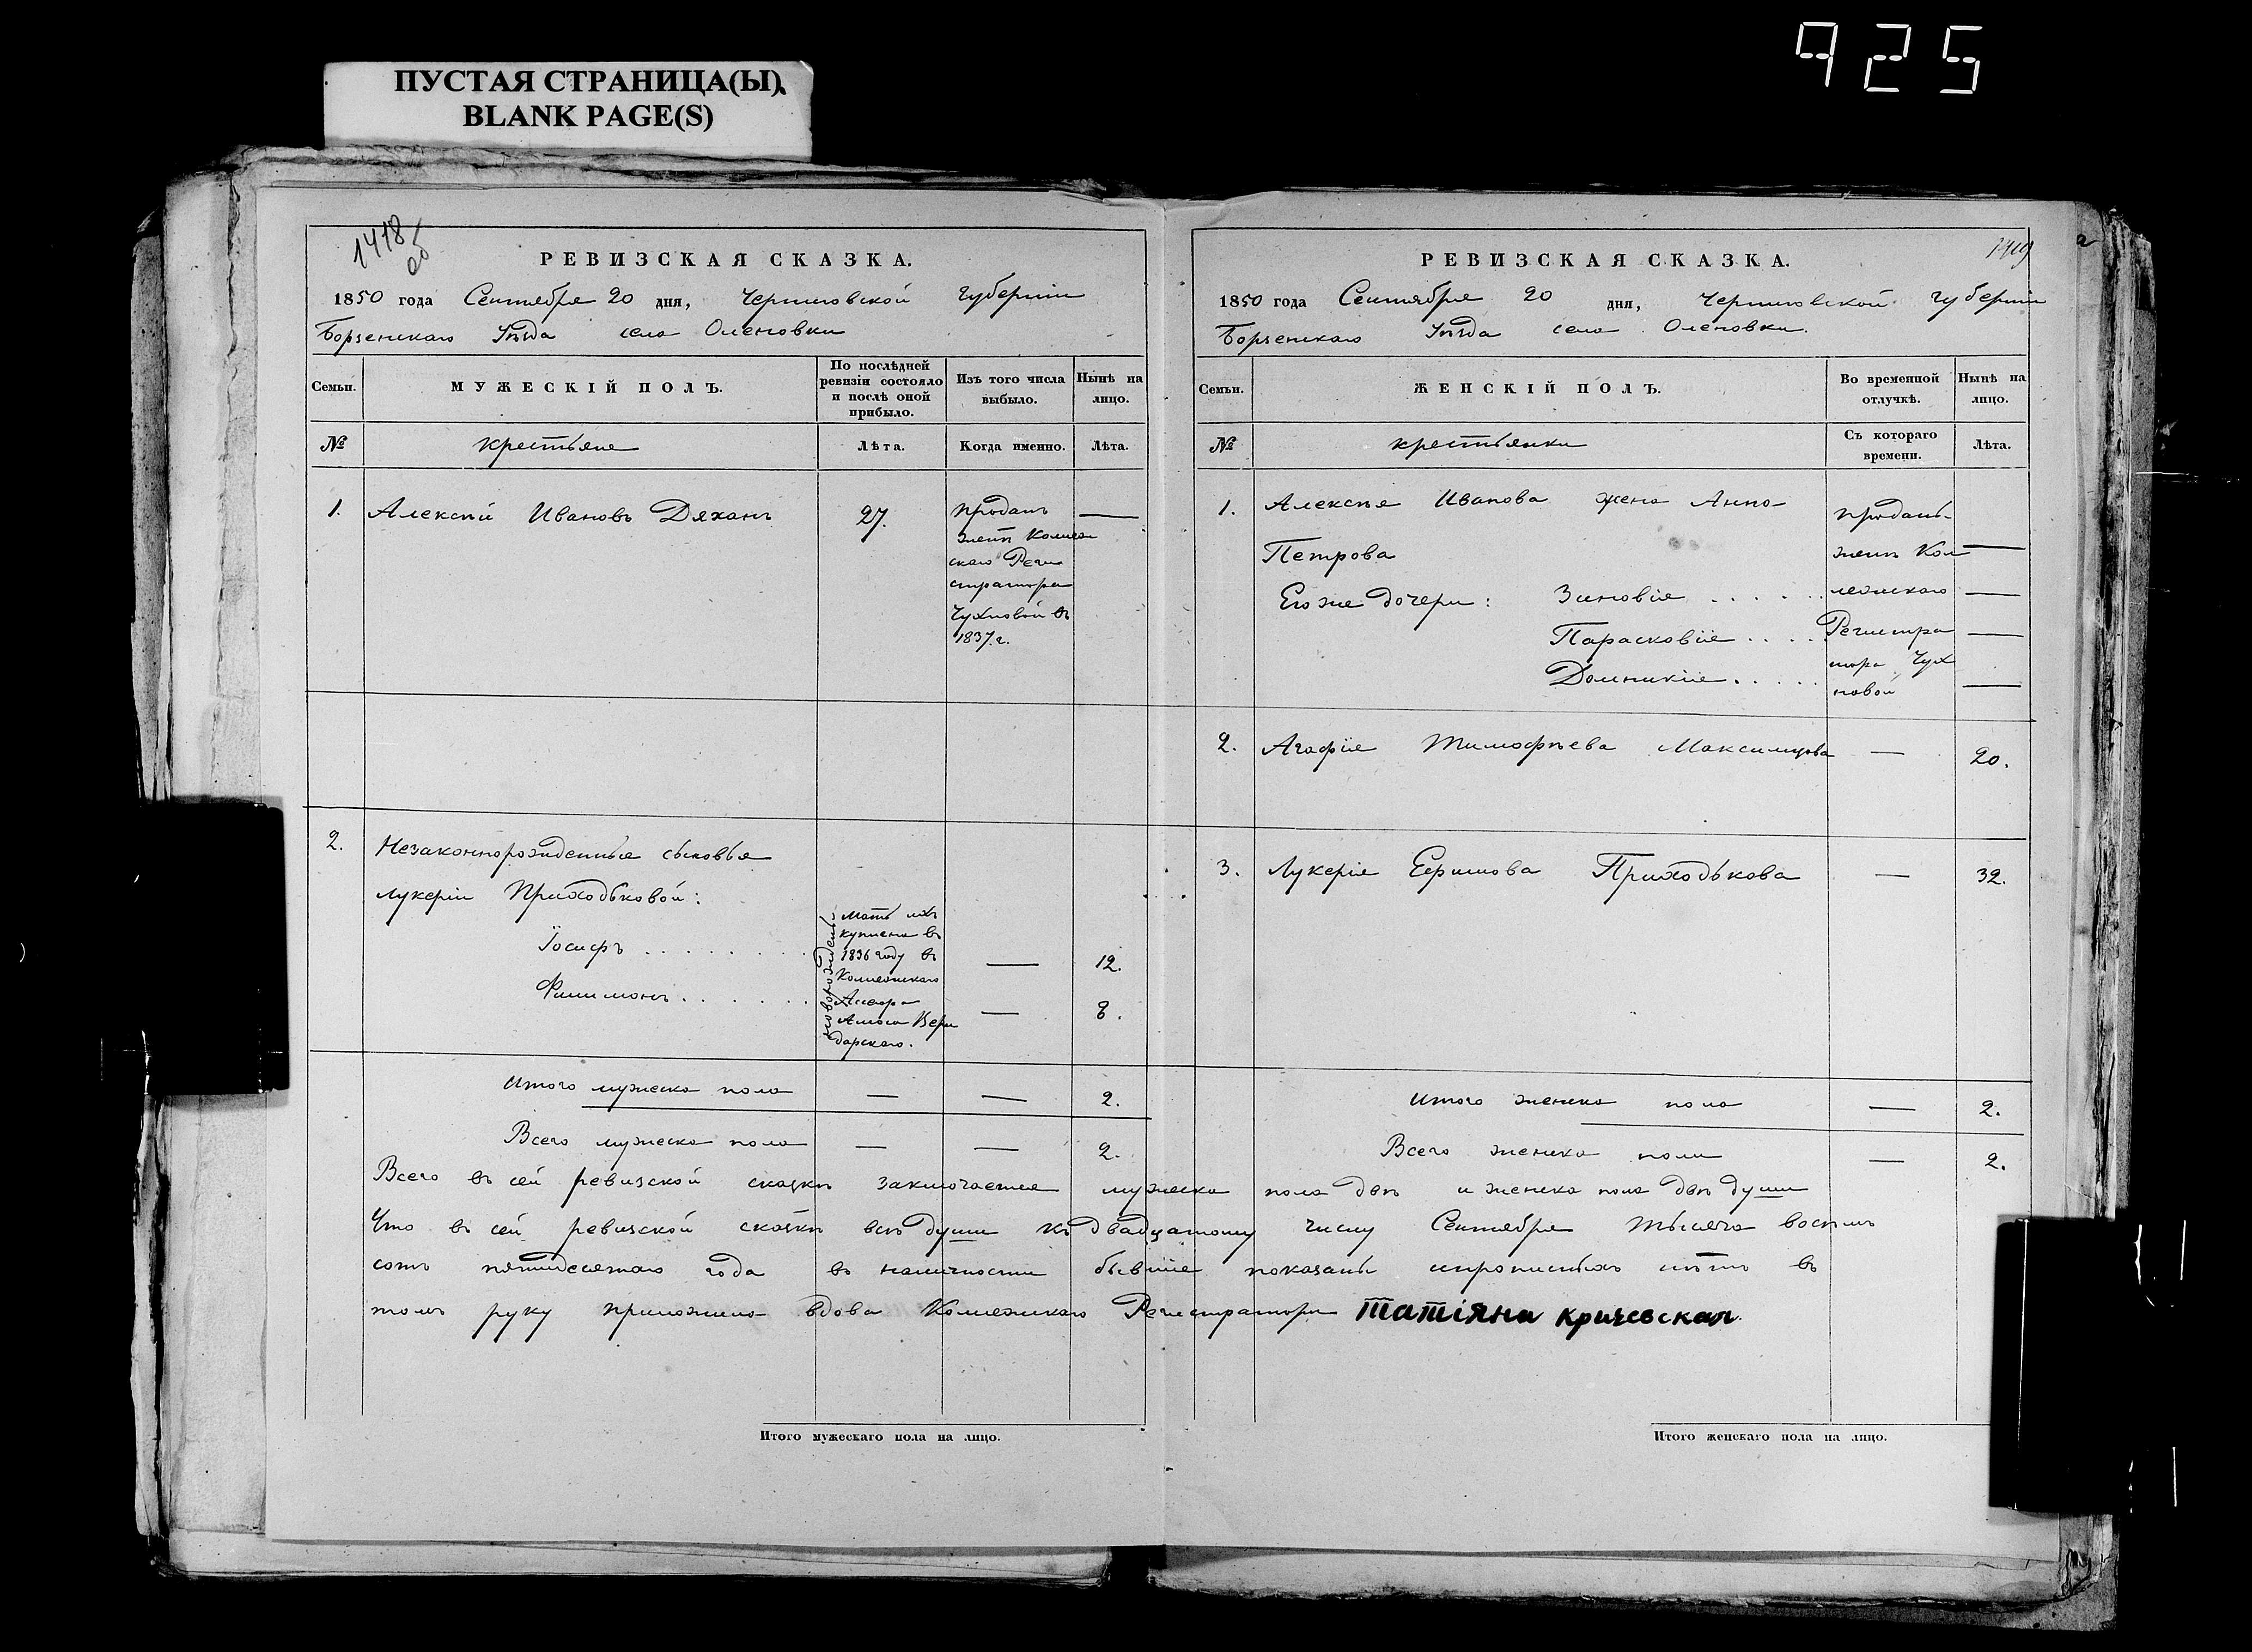 925
ПУСТАЯ СТРАНИЦА(Ы).
BLANK PAGE(S)
1418
об
РЕВИЗСКАЯ СКАЗКА.
1850 года Сентября 20 дня, Черниговской губернiи
Борзенскаго Уѣзда села Оленовки
Семьи.
МУЖЕСКIЙ ПОЛЪ.
По послѣдней ревизiи состояло и послѣ оной прибыло.
Изъ того числа выбыло.
Нынѣ на лицо.
№
крестьяне
Лѣта.
Когда именно.
Лѣта.
1. Алексѣй Ивановъ Дяханъ 27. —
проданъ
женѣ Коллеж
скаго Реги
стратора
Чухновой въ
1837.г.
2. Незаконнорожденные сыновья
Лукерiи Приходьковой:
Iосифъ . . . . . . . . — 12.
Филимонъ . . . . . . . — 8.
Мать ихъ
куплена въ
1836 году въ
Коллежскаго
Асесора
дарскаго.
Итого мужеска пола — — 2.
Всего мужеска пола — — 2.
1419
РЕВИЗСКАЯ СКАЗКА.
1850 года Сентября 20 дня, Черниговской губернiи
Борзенскаго Уѣзда села Оленовки.
Семьи.
ЖЕНСКIЙ ПОЛЪ.
Во временной отлучкѣ.
Нынѣ на лицо.
№
крестьянки
Съ котораго времени.
Лѣта.
1. Алексѣя Иванова жена Анна
Петрова —
Его же дочери: Зиновiя . . . . . —
Парасковiя . . . . —
Домникiя . . . . . —
проданы
женѣ Кол
лежскаго
Регистра
тора Чух
новой
2. Агафiя Тимофѣева Максимцова — 20.
3. Лукерiя Ефимова Приходькова — 32.
Итого женска пола — 2.
Всего женска пола — 2.
Всего въ сей ревизской сказкѣ заключается мужеска пола двѣ и женска пола двѣ души
Что въ сей ревизской сказкѣ всѣ души къ двадцатому числу Сентября тысяча восемъ
сотъ пятидесятаго года въ наличности бывшiе показаны и прописныхъ нѣтъ въ
томъ руку приложила вдова Коллежскаго Регистратора Татiяна Кричевская.
Итого мужескаго пола на лицо.
Итого женскаго пола на лицо.